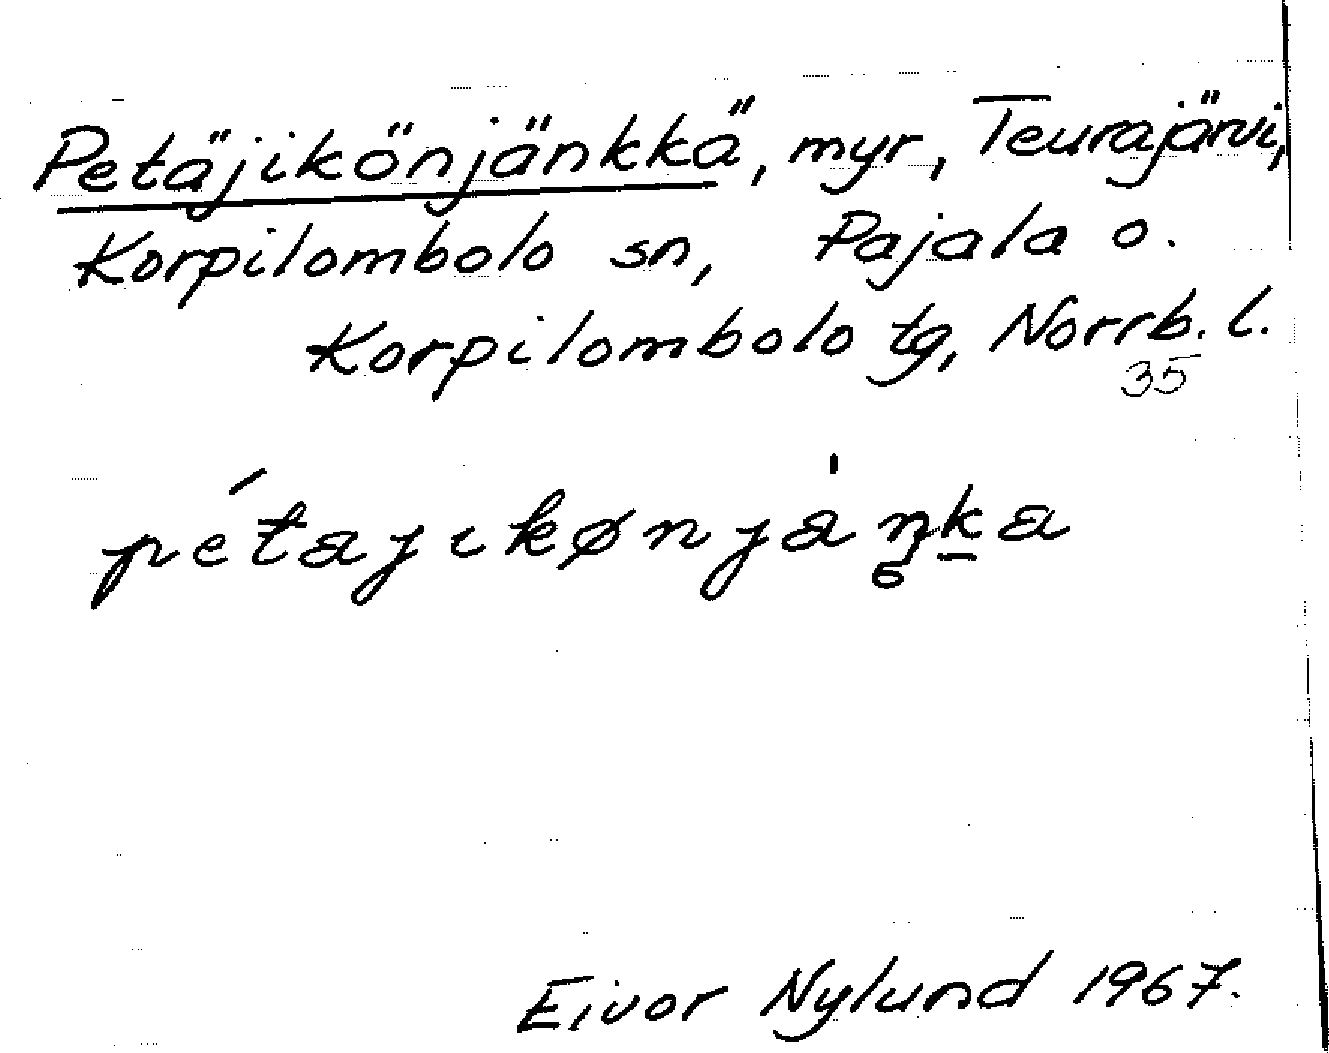 Petäjikönjänkkä, myr, Teurajärvi,
Korpilombolo sn, Pajala o.
Korpilombolo tg, Norrb. l.
35
Eivor Nylund 1967.